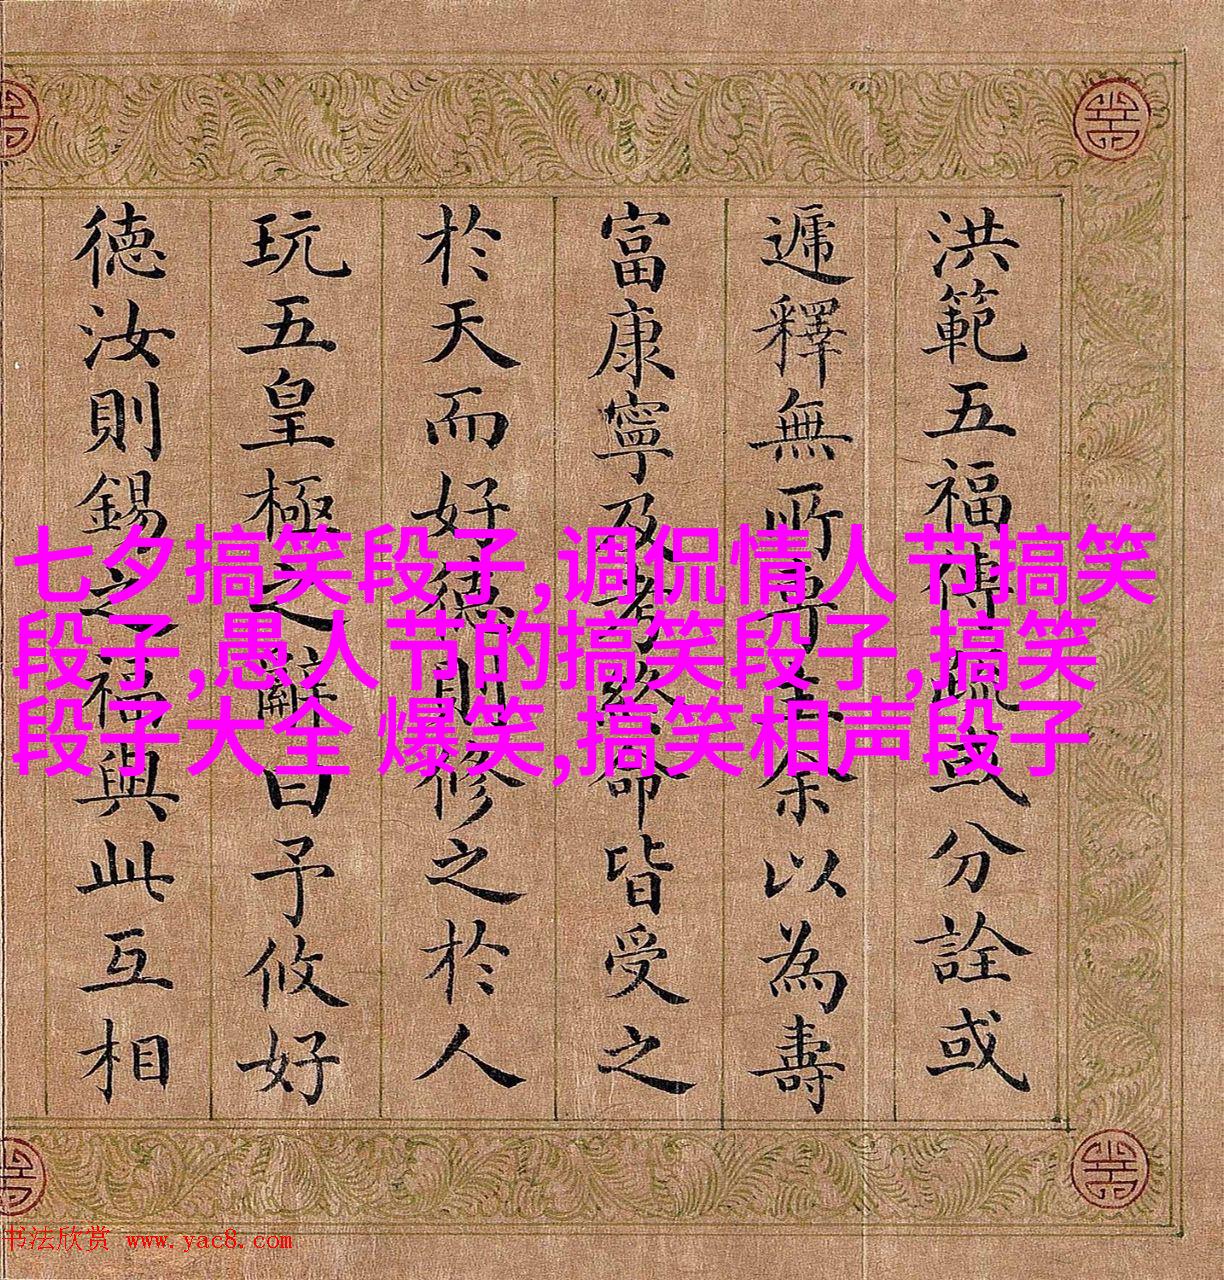 洪範五福傳疏或分詮或
遞釋無所專主余以為壽
富康寧及考終命皆受之
於天而好德則修之於人
玩五皇極之辭曰予攸好
德汝則錫之福與此互相
七夕搞笑段子,调侃情人节搞笑
段子,愚人节的搞笑段子,搞笑
段子大全 爆笑,搞笑相声段子
书法欣赏 www.yac8.com